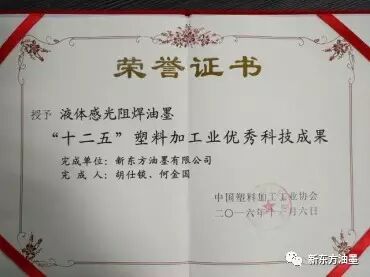 荣誉证书
授予 液体感光阻焊油墨
“十二五”塑料加工业优秀科技成果
完成单位：新东方油墨有限公司
完 成 人：胡仕锁、何金国
中国塑料加工工业协会
新东方油墨